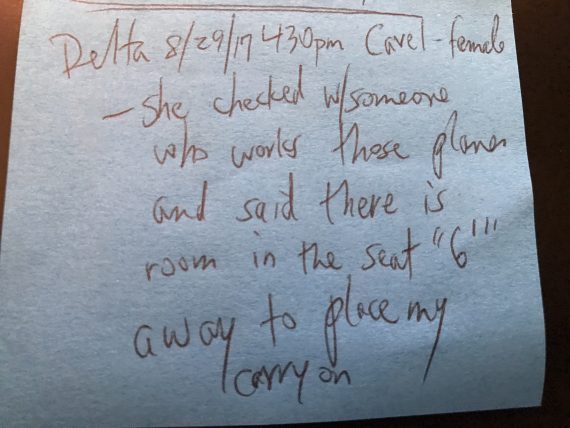 Delta 8/29/17 430pm Carel - female
- She checked w/someone
who works those planes
and said there is
room in the seat "6'"
away to place my
carry on